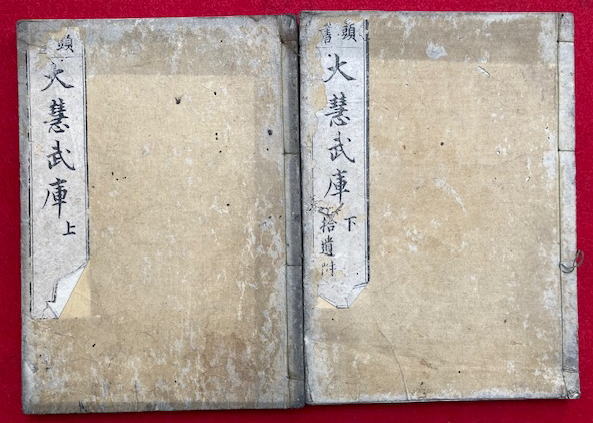 頭書
大慧武庫
下
拾遺附
頭
大慧武庫
上